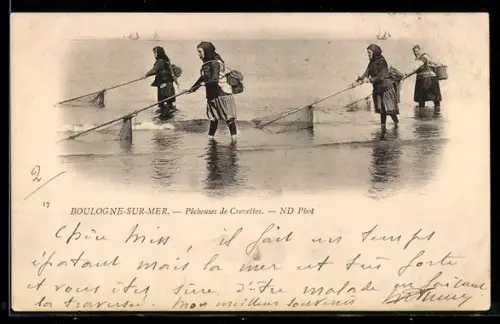 2
17
BOULOGNE-SUR-MER. — Pêcheuses de Crevettes. — ND Phot
Chère Miss, il fait un temps
épatant mais la mer est très forte
et vous êtes sûre d'être malade en faisant
la traversée. Mon meilleur souvenir